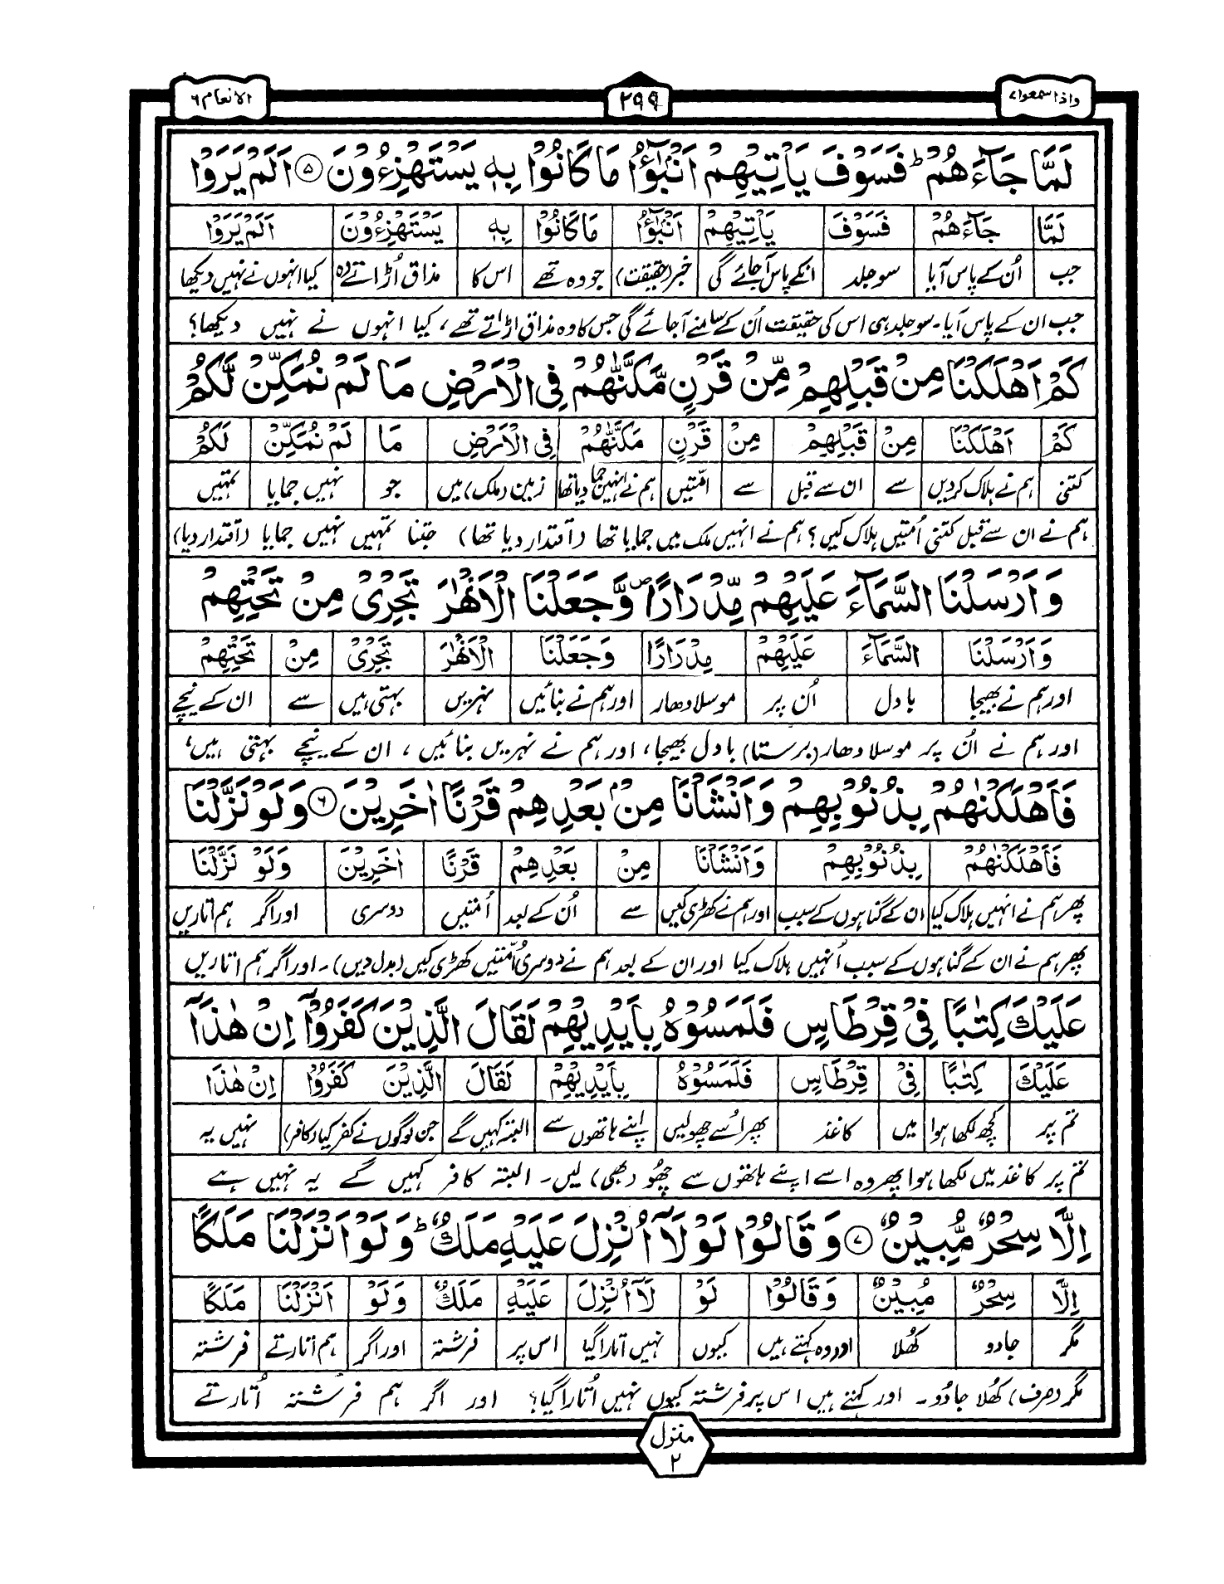 واذا سمعوا ۷
۲۹۹
الانعام ۶
لَمَّا جَآءَهُمْ ؕ فَسَوْفَ يَاْتِيْهِمْ اَنْۢبٰٓؤُا مَا كَانُوْا بِهٖ يَسْتَهْزِءُوْنَ ﴿۵﴾ اَلَمْ يَرَوْا
لَمَّا جَآءَهُمْ فَسَوْفَ يَاْتِيْهِمْ اَنْۢبٰٓؤُا مَا كَانُوْا بِهٖ يَسْتَهْزِءُوْنَ اَلَمْ يَرَوْا
جب اُن کے پاس آیا سو جلد انکے پاس آجائے گی خبر (حقیقت) جو وہ تھے اس کا مذاق اُڑاتے وہ کیا انہوں نے نہیں دیکھا
جب ان کے پاس آیا۔ سو جلد ہی اس کی حقیقت اُن کے سامنے آجائے گی جس کا وہ مذاق اڑاتے تھے، کیا انہوں نے نہیں دیکھا؟
كَمْ اَهْلَكْنَا مِنْ قَبْلِهِمْ مِّنْ قَرْنٍ مَّكَّنّٰهُمْ فِى الْاَرْضِ مَا لَمْ نُمَكِّنْ لَّكُمْ
كَمْ اَهْلَكْنَا مِنْ قَبْلِهِمْ مِنْ قَرْنٍ مَكَّنّٰهُمْ فِى الْاَرْضِ مَا لَمْ نُمَكِّنْ لَكُمْ
کتنی ہم نے ہلاک کردیں سے ان سے قبل سے امتیں ہم نے انہیں جما دیا تھا زمین (ملک) میں جو نہیں جمایا تمہیں
ہم نے ان سے قبل کتنی اُمتیں ہلاک کیں؟ ہم نے انہیں ملک میں جمایا تھا (اقتدار دیا تھا) جتنا تمہیں نہیں جمایا (اقتدار دیا)
وَاَرْسَلْنَا السَّمَآءَ عَلَيْهِمْ مِّدْرَارًا ۪ وَّجَعَلْنَا الْاَنْهٰرَ تَجْرِىْ مِنْ تَحْتِهِمْ
وَاَرْسَلْنَا السَّمَآءَ عَلَيْهِمْ مِدْرَارًا وَجَعَلْنَا الْاَنْهٰرَ تَجْرِىْ مِنْ تَحْتِهِمْ
اور ہم نے بھیجا بادل اُن پر موسلا دھار اور ہم نے بنائیں نہریں بہتی ہیں سے ان کے نیچے
اور ہم نے اُن پر موسلا دھار (برستا) بادل بھیجا، اور ہم نے نہریں بنائیں، ان کے نیچے بہتی ہیں،
فَاَهْلَكْنٰهُمْ بِذُنُوْبِهِمْ وَاَنْشَاْنَا مِنْۢ بَعْدِهِمْ قَرْنًا اٰخَرِيْنَ ﴿۶﴾ وَلَوْ نَزَّلْنَا
فَاَهْلَكْنٰهُمْ بِذُنُوْبِهِمْ وَاَنْشَاْنَا مِنْ بَعْدِهِمْ قَرْنًا اٰخَرِيْنَ وَلَوْ نَزَّلْنَا
پھر ہم نے انہیں ہلاک کیا ان کے گناہوں کے سبب اور ہم نے کھڑی کیں سے اُن کے بعد اُمتیں دوسری اور اگر ہم اتاریں
پھر ہم نے ان کے گناہوں کے سبب اُنہیں ہلاک کیا اور ان کے بعد ہم نے دوسری اُمتیں کھڑی کیں (بدل دیں)۔ اور اگر ہم اتاریں
عَلَيْكَ كِتٰبًا فِىْ قِرْطَاسٍ فَلَمَسُوْهُ بِاَيْدِيْهِمْ لَقَالَ الَّذِيْنَ كَفَرُوْۤا اِنْ هٰذَاۤ
عَلَيْكَ كِتٰبًا فِىْ قِرْطَاسٍ فَلَمَسُوْهُ بِاَيْدِيْهِمْ لَقَالَ الَّذِيْنَ كَفَرُوْۤا اِنْ هٰذَاۤ
تم پر کچھ لکھا ہوا میں کاغذ پھر اُسے چھولیں اپنے ہاتھوں سے البتہ کہیں گے جن لوگوں نے کفر کیا (کافر) نہیں یہ
تم پر کاغذ میں لکھا ہوا پھر وہ اسے اپنے ہاتھوں سے چھُو (بھی) لیں۔ البتہ کافر کہیں گے یہ نہیں ہے
اِلَّا سِحْرٌ مُّبِيْنٌ ﴿۷﴾ وَقَالُوْا لَوْلَاۤ اُنْزِلَ عَلَيْهِ مَلَكٌ ؕ وَلَوْ اَنْزَلْنَا مَلَكًا
اِلَّا سِحْرٌ مُبِيْنٌ وَقَالُوْا لَوْ لَاۤ اُنْزِلَ عَلَيْهِ مَلَكٌ وَلَوْ اَنْزَلْنَا مَلَكًا
مگر جادو کھُلا اور وہ کہتے ہیں کیوں نہیں اتارا گیا اس پر فرشتہ اور اگر ہم اتارتے فرشتہ
مگر (صرف) کھُلا جادُو۔ اور کہتے ہیں اس پر فرشتہ کیوں نہیں اُتارا گیا؟ اور اگر ہم فرشتہ اُتارتے
منزل ۲